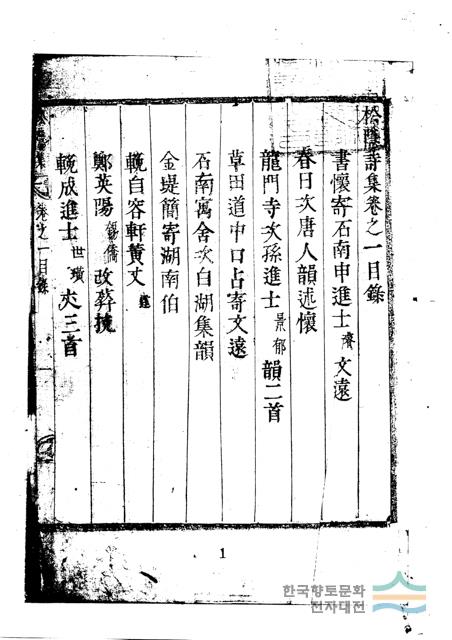 松隱詩集卷之一目錄
書懷寄石南申進士 濟 文遠
春日次唐人韻述懷
龍門寺次孫進士 景郁 韻二首
草田道中口占寄文遠
石南寓舍次白湖集韻
金堤簡寄湖南伯
輓自容軒黃丈
鄭英陽 改葬輓
輓成進士 世璜 夫三首
卷之一目錄
1
한국향토문화
전자대전